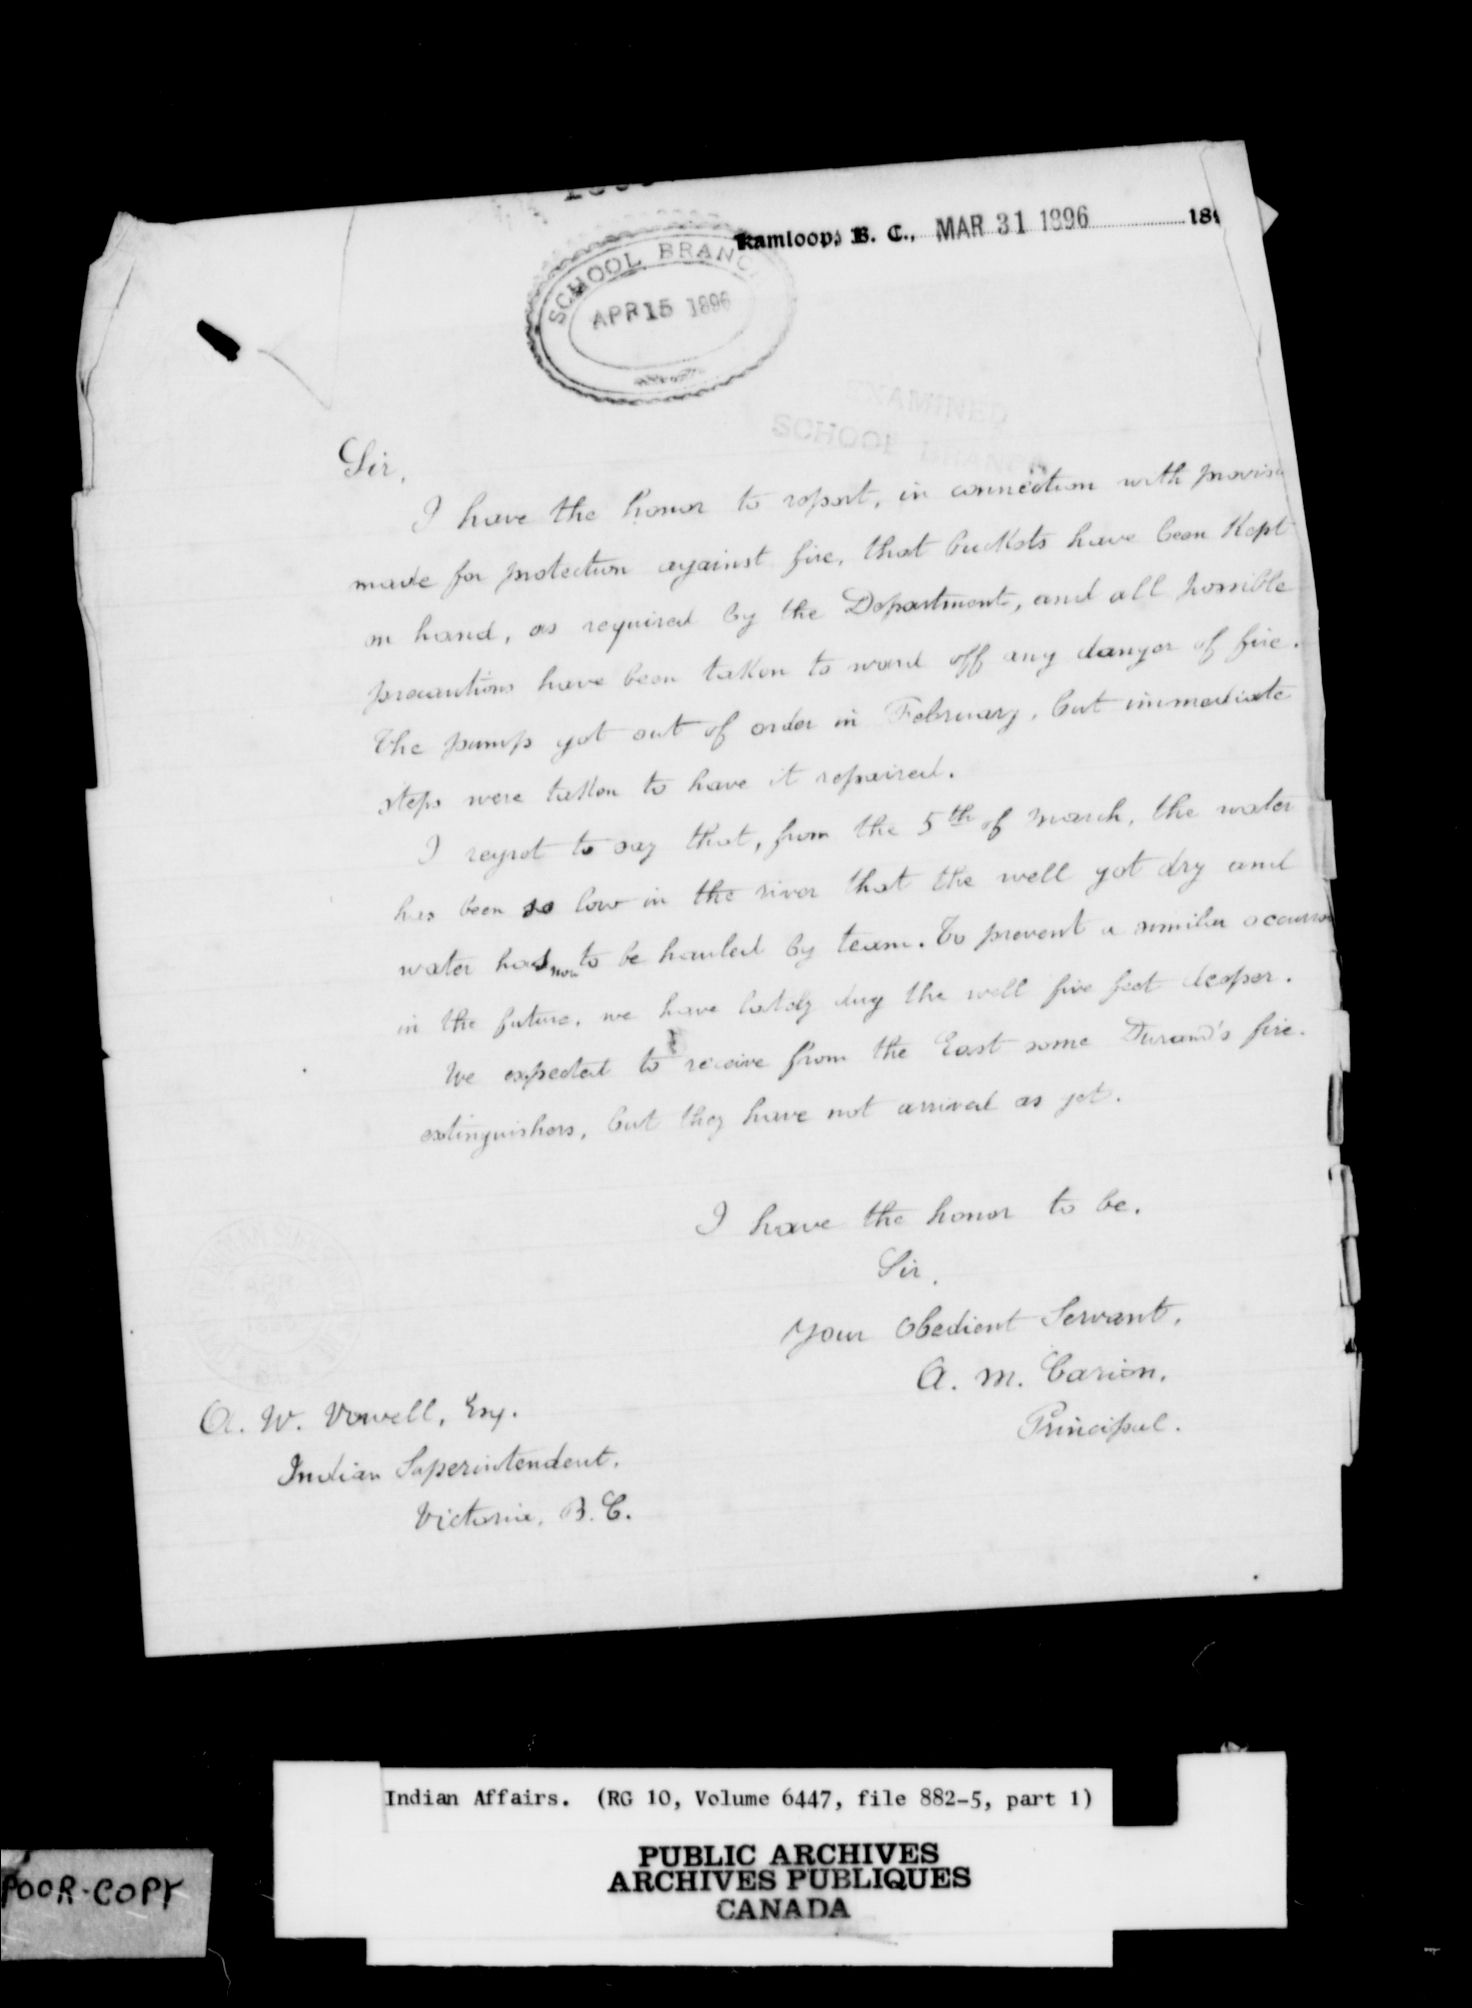 Kamloops B. C., MAR 31 1896 18
SCHOOL BRANC
APR 15 1896
EXAMINED
SCHOOL BRANCH
Sir,
I have the honor to report, in connection with provisi
made for protection against fire, that buckets have been kept
on hand, as required by the Department, and all possible
precautions have been taken to ward off any danger of fire.
The pump got out of order in February, but immediate
steps were taken to have it repaired.
I regret to say that, from the 5th of March, the water
has been so low in the river that the well got dry and
water has now to be hauled by team. To prevent a similar occurren
in the future, we have lately dug the well five feet deeper.
We expected to receive from the East some Durand's fire-
extinguishers, but they have not arrived as yet.
I have the honor to be,
Sir,
Your Obedient Servant,
A. M. Carion,
Principal.
A. W. Vowell, Esq.
Indian Superintendent,
Victoria, B. C.
Indian Affairs. (RG 10, Volume 6447, file 882-5, part 1)
PUBLIC ARCHIVES
ARCHIVES PUBLIQUES
CANADA
POOR-COPY